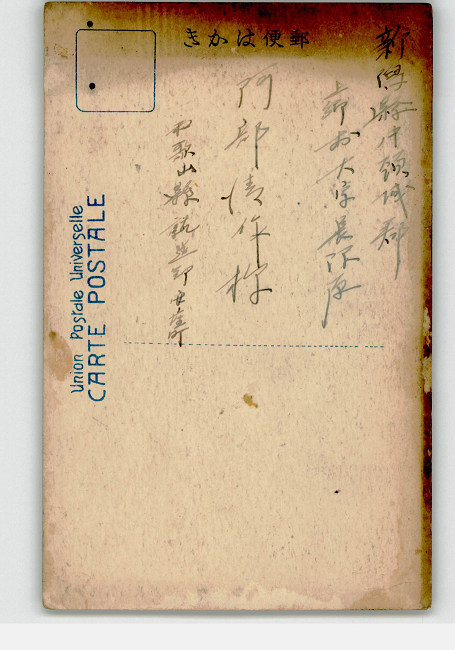 きかは便郵
新潟縣中頸城郡
村大字長
阿部清作様
和歌山縣
Union Postale Universelle
CARTE POSTALE